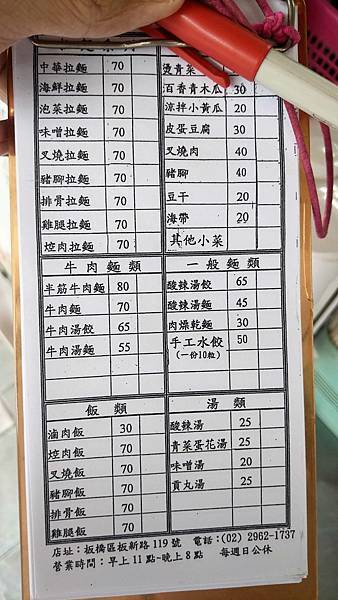 中華拉麵 70
海鮮拉麵 70
泡菜拉麵 70
味噌拉麵 70
叉燒拉麵 70
豬腳拉麵 70
排骨拉麵 70
雞腿拉麵 70
焢肉拉麵 70
燙青菜
百香青木瓜 30
涼拌小黃瓜 20
皮蛋豆腐 30
叉燒肉 40
豬腳 40
豆干 20
海帶 20
其他小菜
牛肉麵類
半筋牛肉麵 80
牛肉麵 70
牛肉湯餃 65
牛肉湯麵 55
一般麵類
酸辣湯餃 65
酸辣湯麵 45
肉燥乾麵 30
手工水餃 50
(一份10粒)
飯類
滷肉飯 30
焢肉飯 70
叉燒飯 70
豬腳飯 70
排骨飯 70
雞腿飯 70
湯類
酸辣湯 25
青菜蛋花湯 25
味噌湯 20
貢丸湯 25
店址：板橋區板新路119號 電話：(02) 2962-1737
營業時間：早上11點~晚上8點 每週日公休